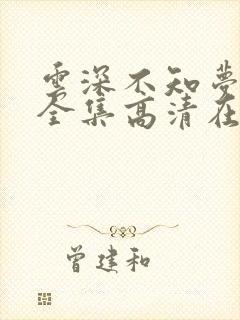 雲深不知夢
全集高清在
曾建和